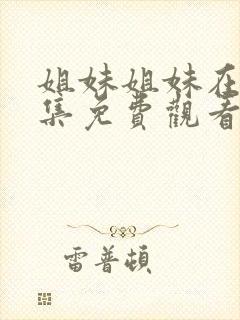 姐妹姐妹在
集免費觀看
雷普頓